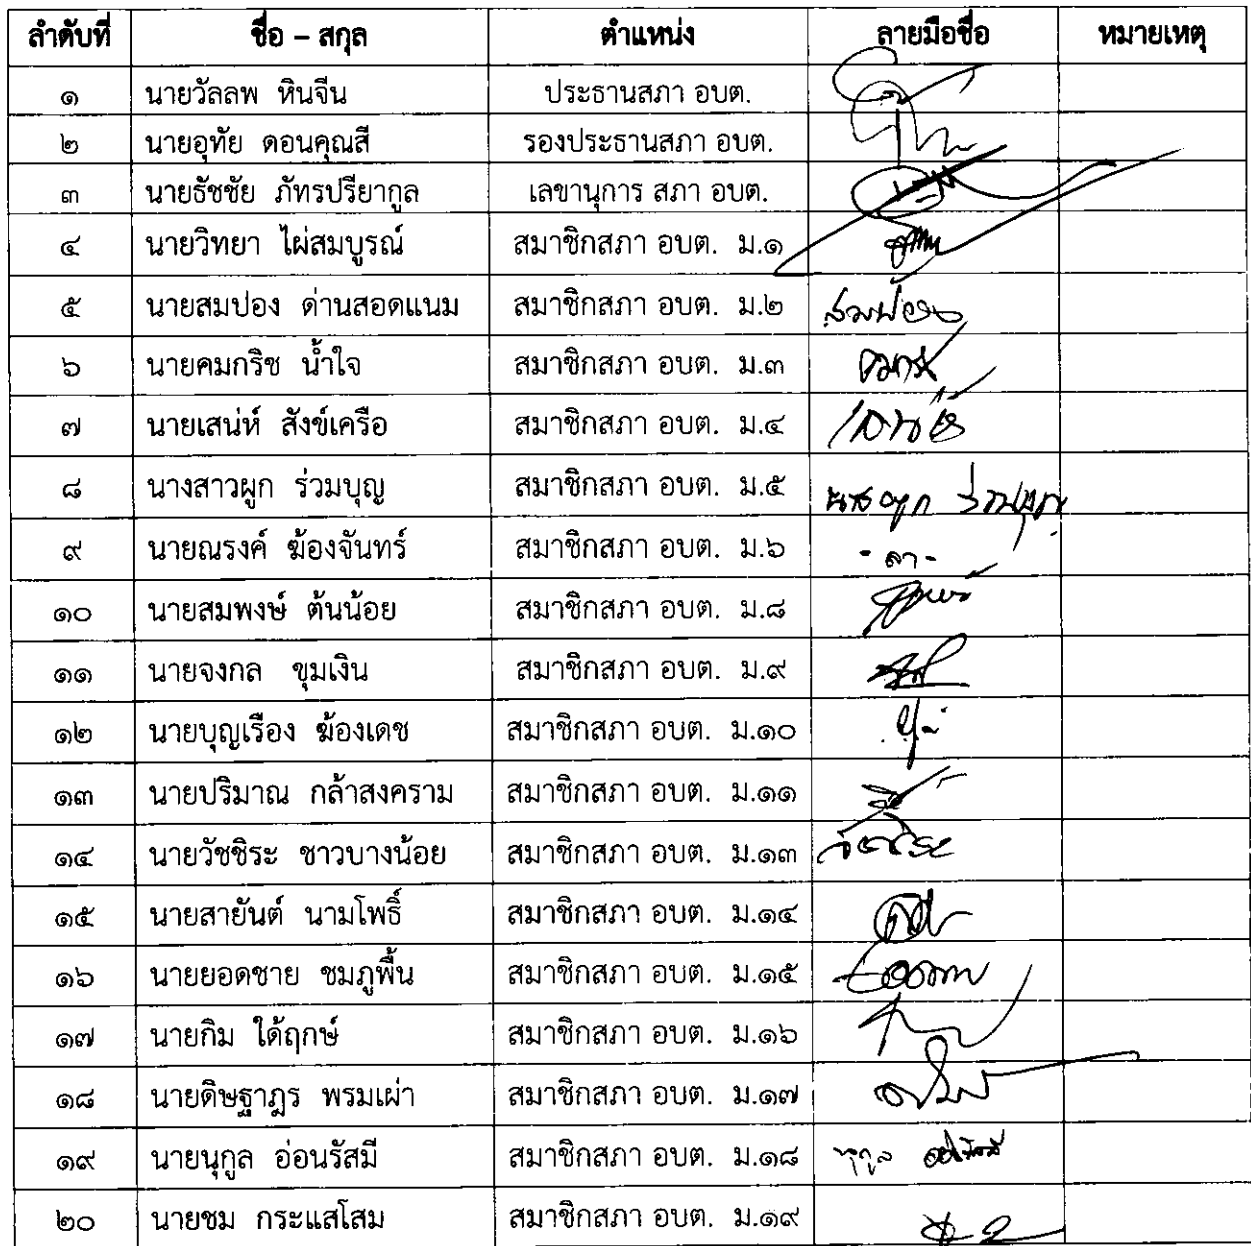 ลำดับที่ ชื่อ – สกุล ตำแหน่ง ลายมือชื่อ หมายเหตุ
๑ นายวัลลพ หินจีน ประธานสภา อบต.
๒ นายอุทัย ดอนคุณสี รองประธานสภา อบต.
๓ นายธัชชัย ภัทรปรียากูล เลขานุการ สภา อบต.
๔ นายวิทยา ไผ่สมบูรณ์ สมาชิกสภา อบต. ม.๑
๕ นายสมปอง ด่านสอดแนม สมาชิกสภา อบต. ม.๒ สมปอง
๖ นายคมกริช น้ำใจ สมาชิกสภา อบต. ม.๓
๗ นายเสน่ห์ สังข์เครือ สมาชิกสภา อบต. ม.๔
๘ นางสาวผูก ร่วมบุญ สมาชิกสภา อบต. ม.๕
๙ นายณรงค์ ฆ้องจันทร์ สมาชิกสภา อบต. ม.๖ - ลา -
๑๐ นายสมพงษ์ ต้นน้อย สมาชิกสภา อบต. ม.๘
๑๑ นายจงกล ขุมเงิน สมาชิกสภา อบต. ม.๙
๑๒ นายบุญเรือง ฆ้องเดช สมาชิกสภา อบต. ม.๑๐
๑๓ นายปริมาณ กล้าสงคราม สมาชิกสภา อบต. ม.๑๑
๑๔ นายวัชชิระ ชาวบางน้อย สมาชิกสภา อบต. ม.๑๓
๑๕ นายสายันต์ นามโพธิ์ สมาชิกสภา อบต. ม.๑๔
๑๖ นายยอดชาย ชมภูพื้น สมาชิกสภา อบต. ม.๑๕
๑๗ นายกิม ใด้ฤกษ์ สมาชิกสภา อบต. ม.๑๖
๑๘ นายดิษฐาฎร พรมเผ่า สมาชิกสภา อบต. ม.๑๗
๑๙ นายนุกูล อ่อนรัสมี สมาชิกสภา อบต. ม.๑๘ นุกูล
๒๐ นายชม กระแสโสม สมาชิกสภา อบต. ม.๑๙